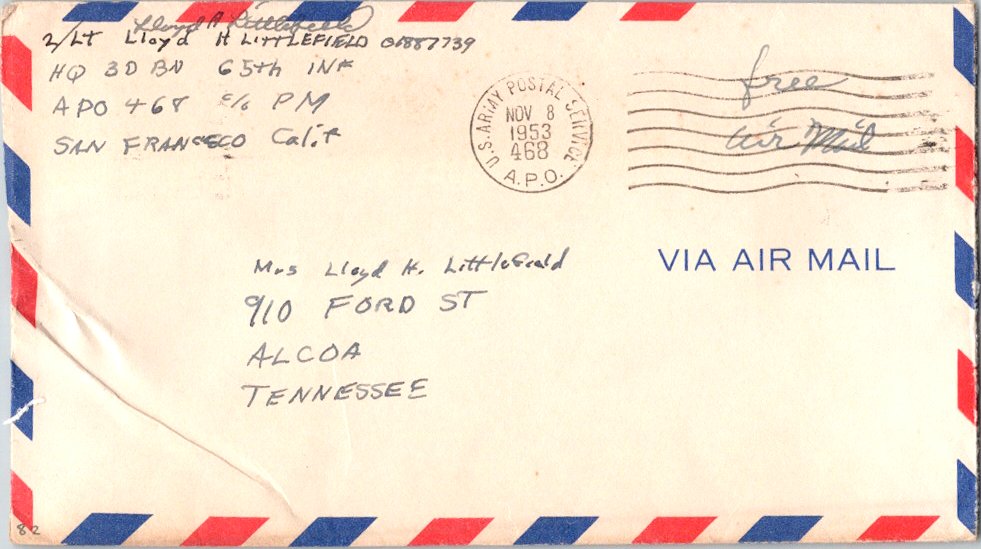 Lloyd H Littlefield
2/LT Lloyd H LITTLEFIELD 01887739
HQ 3D BN 65th INF
APO 468 c/o PM
SAN FRANCSCO Calif
U.S. ARMY POSTAL SERVICE
NOV 8
1953
468
A.P.O.
free
air Mail
VIA AIR MAIL
Mrs Lloyd H. Littlefield
910 FORD ST
ALCOA
TENNESSEE
82